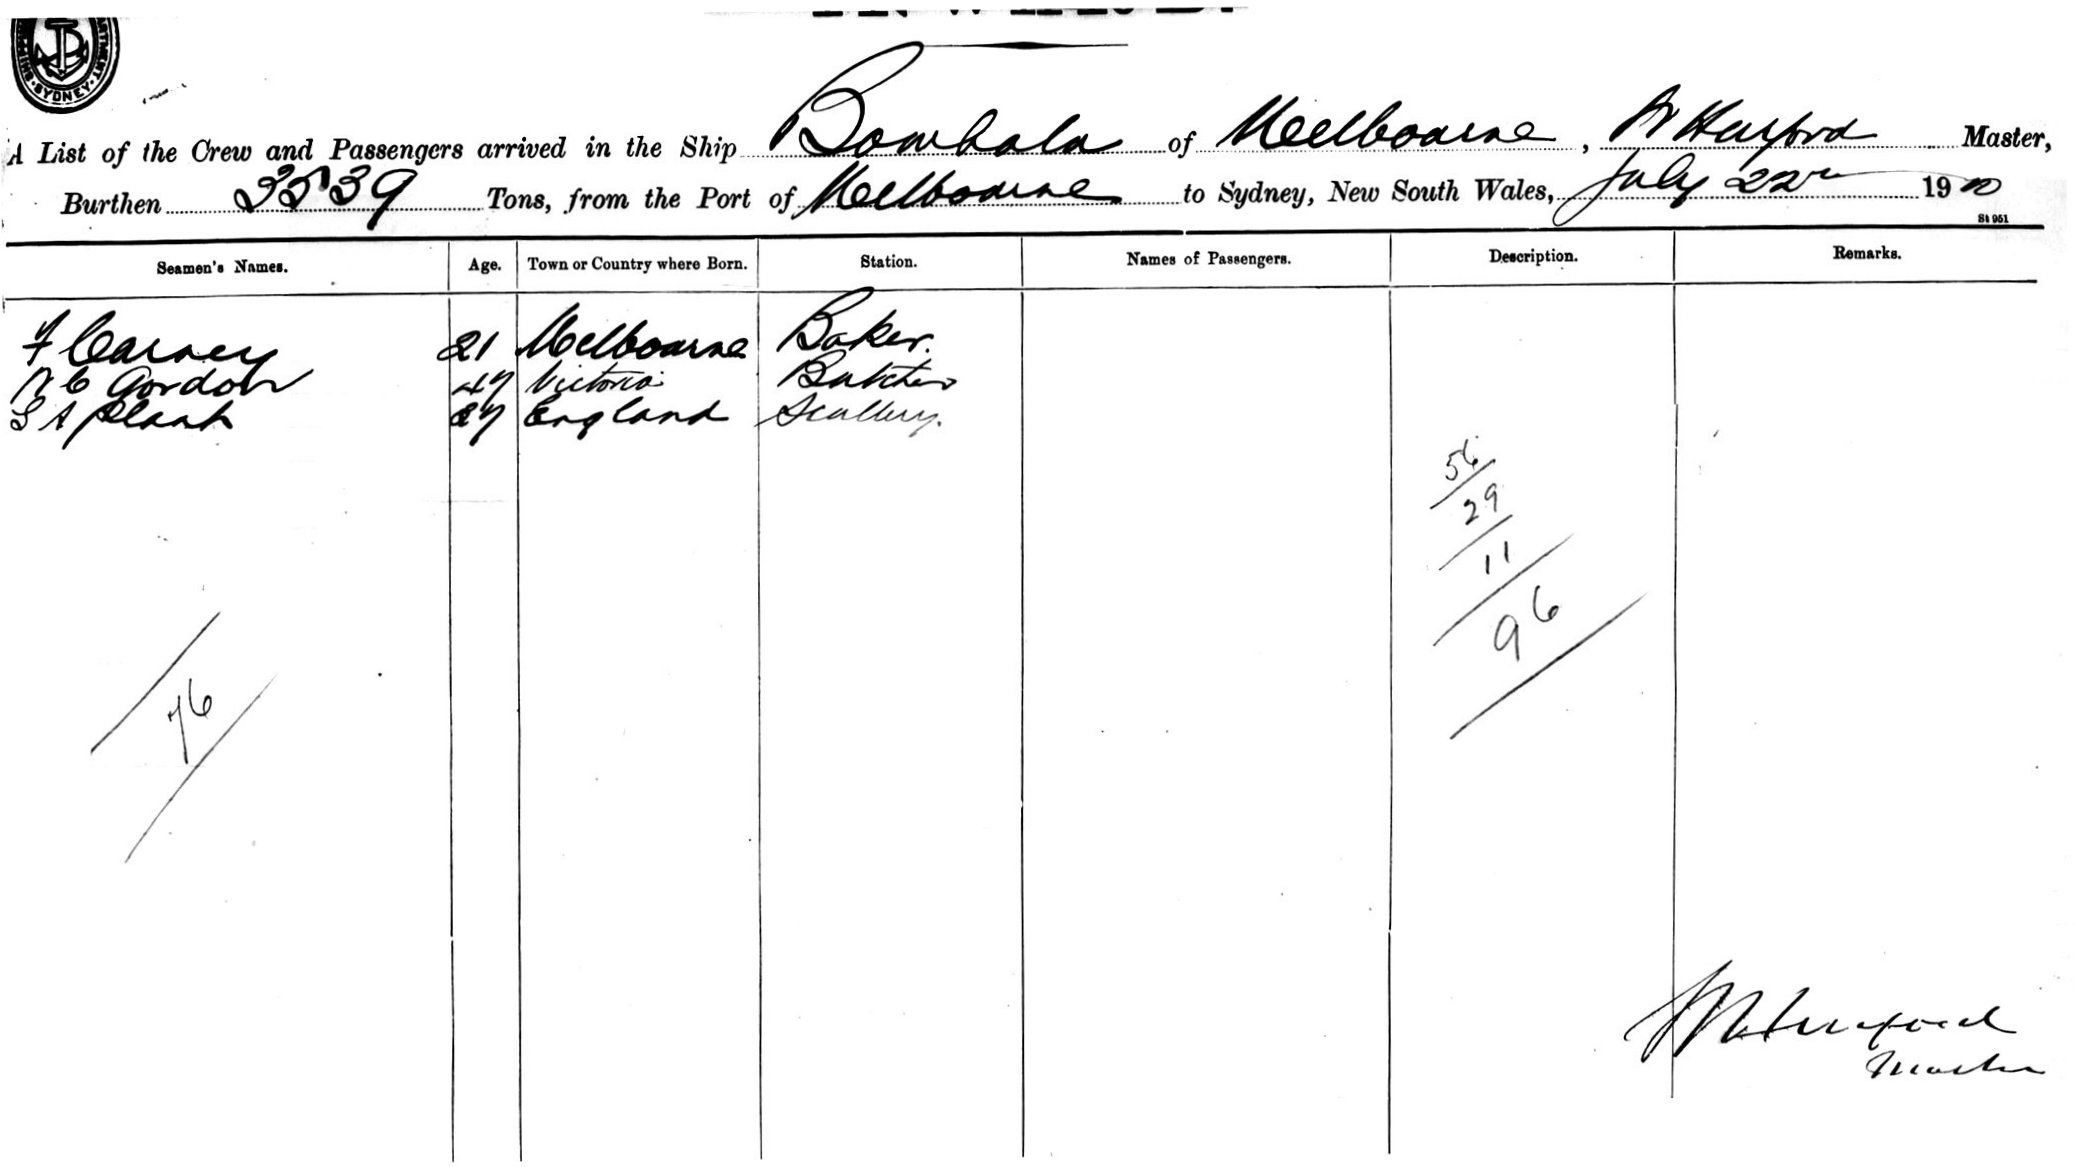 SYDNEY
A List of the Crew and Passengers arrived in the Ship Bombala of Melbourne, Master,
Burthen 3539 Tons, from the Port of Melbourne to Sydney, New South Wales, July 22nd 1910
St 951
Seamen's Names. Age. Town or Country where Born. Station. Names of Passengers. Description. Remarks.
F Carney 21 Melbourne Baker.
Gordon 47 Victoria Butcher
S A Plank England Scullery.
56
29
11
96
76
Master